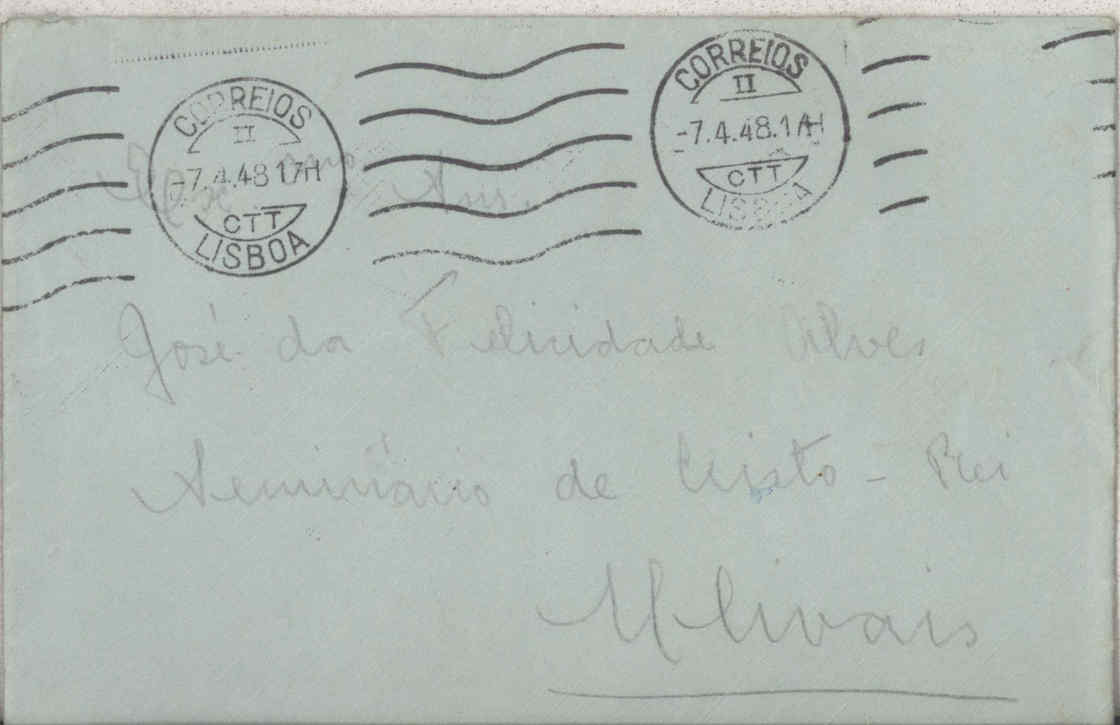 CORREIOS
II
-7.4.48 17H
CTT
LISBOA
CORREIOS
II
-7.4.48.17H
CTT
LISBOA
Snr.
José da Felicidade Alves
Seminário de Cristo-Rei
Olivais